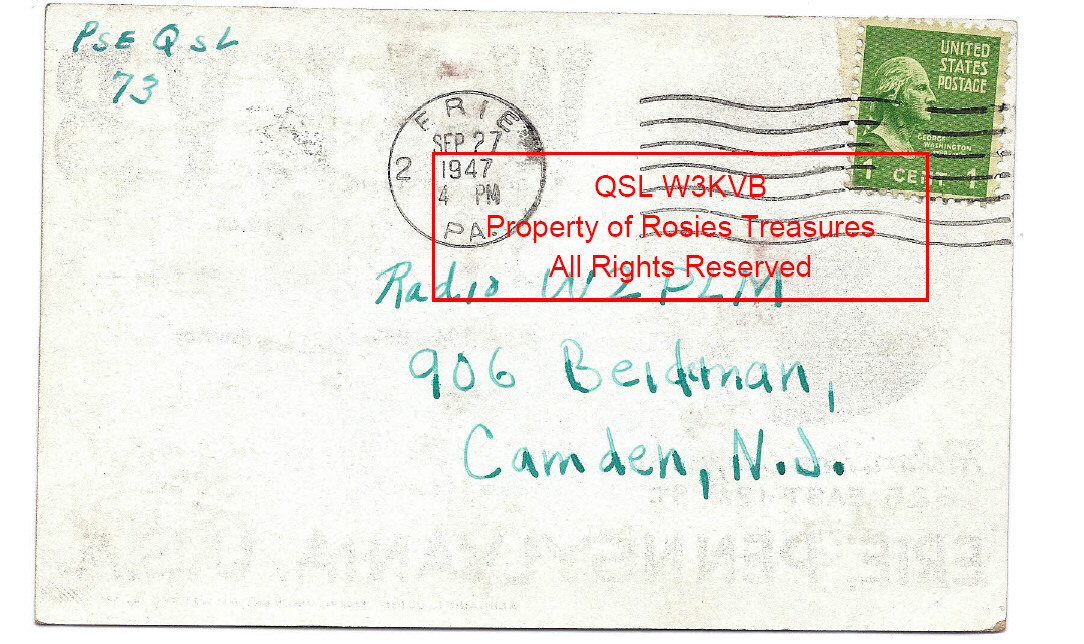 PSE QSL
73
ERIE
SEP 27
1947
2
4 PM
PA.
UNITED
STATES
POSTAGE
GEORGE
WASHINGTON
1 CENT 1
QSL W3KVB
Property of Rosies Treasures
All Rights Reserved
Radio W2PLM
906 Beidman,
Camden, N.J.
ERIE, PENNSYLVANIA